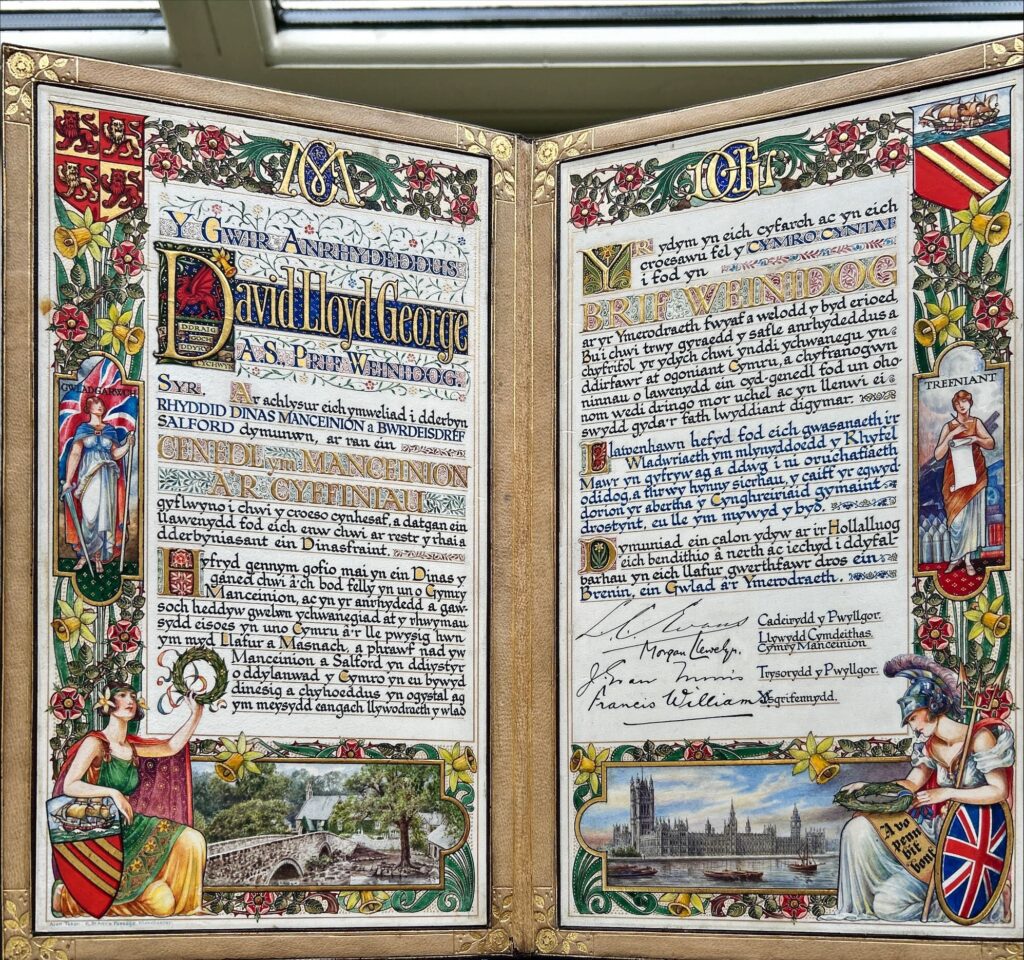 Y GWIR ANRHYDEDDUS
David Lloyd George
DDRAIG
GOCH
DDYRY
CYCHWYN
A.S. PRIF WEINIDOG.
SYR. Ar achlysur eich ymweliad i dderbyn
RHYDDID DINAS MANCEINION a BWRDEISDREF
SALFORD dymunwn, ar ran ein
CENEDL ym MANCEINION
A'R CYFFINIAU
gyflwyno i chwi y croeso cynhesaf, a datgan ein
llawenydd fod eich enw chwi ar restr y rhai a
dderbyniasant ein Dinasfraint.
Hyfryd gennym gofio mai yn ein Dinas y
ganed chwi a'ch bod felly yn un o Gymry
Manceinion, ac yn yr anrhydedd a gaw-
soch heddyw gwelwn ychwanegiad at y rhwymau
sydd eisoes yn uno Cymru a'r lle pwysig hwn
ym myd Llafur a Masnach, a phrawf nad yw
Manceinion a Salford yn ddiystyr
o ddylanwad y Cymro yn eu bywyd
dinesig a chyhoeddus yn ogystal ag
ym meysydd eangach llywodraeth y wlad
GWLADGARWCH
Yr ydym yn eich cyfarch ac yn eich
croesawu fel y CYMRO CYNTAF
i fod yn
BRIF WEINIDOG
ar yr Ymerodraeth fwyaf a welodd y byd erioed,
Bu i chwi trwy gyraedd y safle anrhydeddus a
chyfrifol yr ydych chwi ynddi ychwanegu yn
ddirfawr at ogoniant Cymru, a chyfranogwn
ninnau o lawenydd ein cyd-genedl fod un oho
nom wedi dringo mor uchel ac yn llenwi ei
swydd gyda'r fath lwyddiant digymar.
Llawenhawn hefyd fod eich gwasanaeth i'r
Wladwriaeth ym mlynyddoedd y Rhyfel
Mawr yn gyfryw ag a ddwg i ni oruchafiaeth
odidog, a thrwy hynny sicrhau, y caiff yr egwyd
dorion yr abertha y Cynghreiriaid gymaint
drostynt, eu lle ym mywyd y byd.
Dymuniad ein calon ydyw ar i'r Hollalluog
eich bendithio â nerth ac iechyd i ddyfal-
barhau yn eich llafur gwerthfawr dros ein
Brenin, ein Gwlad a'r Ymerodraeth.
Evans Cadeirydd y Pwyllgor.
Morgan Llewelyn. Llywydd Cymdeithas
Cymry Manceinion
Trysorydd y Pwyllgor.
Francis William Ysgrifennydd.
TREFNIANT
A vo
penn
bit
bont